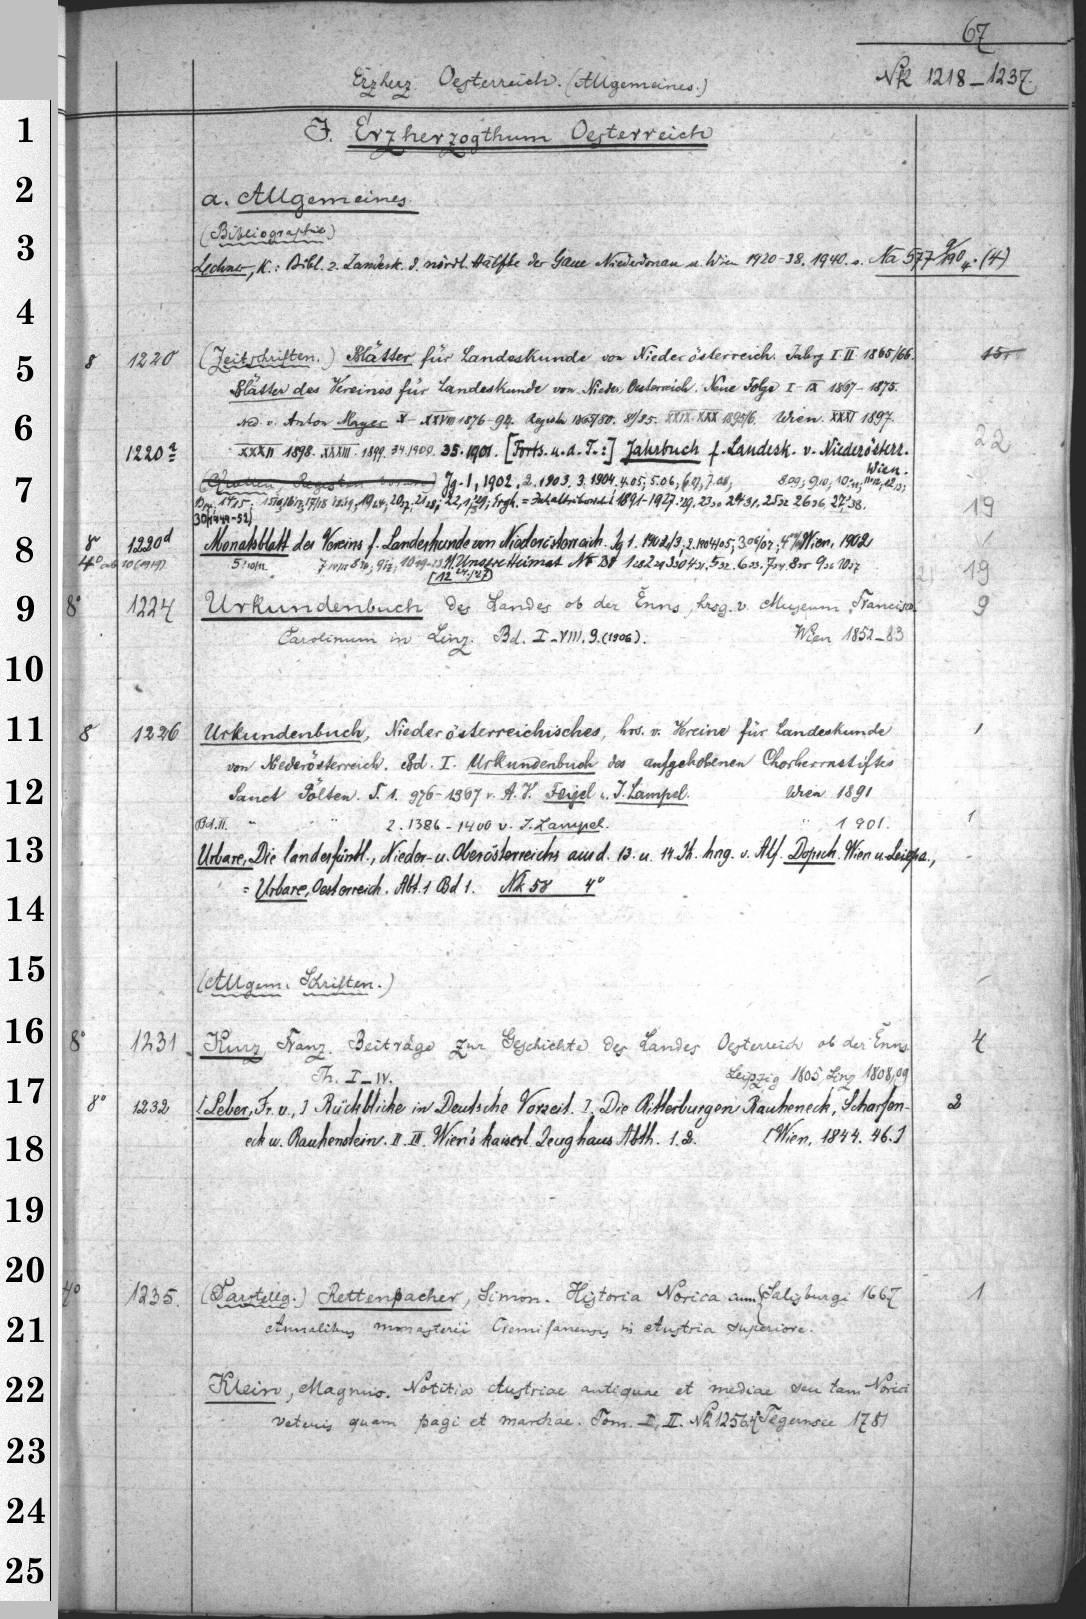 67
Erzherz. Oesterreich. (Allgemeines.) Nk 1218–1237.
1 J. Erzherzogthum Oesterreich
2 a. Allgemeines.
(Bibliographie)
3 Lechner, K.: Bibl. z. Landesk. d. nördl. Hälfte der Gaue Niederdonau u. Wien 1920–38. 1940. s. Na 577 (4)
4
5 8 1220 (Zeitschriften.) Blätter für Landeskunde von Niederösterreich. Jahrg I–II 1865/66. 15
Blätter des Vereines für Landeskunde von Nieder Oesterreich. Neue Folge I–IX 1867–1875.
6 red. v. Anton Mayer X–XXVIII 1876–94. Register 1865/80. 81/85. XXIX–XXX 1895/6. Wien. XXXI 1897. 22
1220a XXXII 1898. XXXIII 1899. 34. 1900. 35. 1901. [Forts. u. d. T.:] Jahrbuch f. Landesk. v. Niederösterr.
Wien.
7 Jg. 1, 1902, 2. 1903. 3. 1904. 4.05; 5.06, 6.07, 7.08, 8.09; 9.10;
19
8 8° 1220d Monatsblatt des Vereins f. Landeskunde von Niederösterreich. Jg 1. 1902/3; 2. 1904/05; 3 06/07; Wien, 1902
4° Unsere Heimat NF Bd 19
9 8° 1224 Urkundenbuch des Landes ob der Enns, hrsg. v. Museum Francisco- 9
Carolinum in Linz. Bd. I–VIII. 9. (1906). Wien 1852–83
10
11 8° 1226 Urkundenbuch, Niederösterreichisches, hrs. v. Vereine für Landeskunde 1
von Niederösterreich. Bd. I. Urkundenbuch des aufgehobenen Chorherrnstiftes
12 Sanct Pölten. T. 1. 976–1367 v. A. V. Feigel u. J. Lampel. Wien 1891
Bd. II. " " " 2. 1386–1400 v. J. Lampel. " 1901. 1
13 Urbare, Die landesfürstl., Nieder- u. Oberösterreichs aus d. 13. u. 14. Jh. hrsg. v. Alf. Dopsch. Wien u. Leipz.,
= Urbare, Oesterreich. Abt. 1 Bd 1. Nk 58 4°
14
15 (Allgem. Schriften.)
16 8° 1231 Kurz, Franz. Beiträge zur Geschichte des Landes Oesterreich ob der Enns. 4
Th. I–IV. Leipzig 1805, Linz 1808, 09
17 8° 1232 [Leber, Fr. v.,] Rückblicke in Deutsche Vorzeit. I, Die Ritterburgen Rauheneck, Scharfen- 2
18 eck u. Rauhenstein. II. III. Wien's kaiserl. Zeughaus Abth. 1. 2. [Wien, 1844. 46.]
19
20 4° 1235. (Darstellg.) Rettenpacher, Simon. Historia Norica cum Salisburgi 1667 1
21 Annalibus monasterii Cremifanensis in Austria superiore.
22 Klein, Magnus. Notitia Austriae antiquae et mediae seu tam Norici
veteris quam pagi et marchae. Tom. I, II. Nk 1256 4° Tegernsee 1781
23
24
25